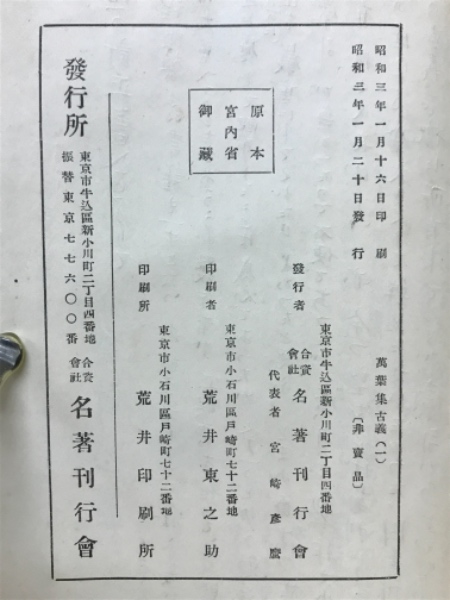 昭和三年一月十六日印刷
昭和三年一月二十日發行
萬葉集古義(一)
〔非賣品〕
原本
宮內省
御藏
東京市牛込區新小川町二丁目四番地
發行者 合資會社 名著刊行會
代表者 宮崎彥麿
東京市小石川區戶崎町七十二番地
印刷者 荒井東之助
東京市小石川區戶崎町七十二番地
印刷所 荒井印刷所
發行所 東京市牛込區新小川町二丁目四番地 合資會社 名著刊行會
振替東京七七六〇〇番